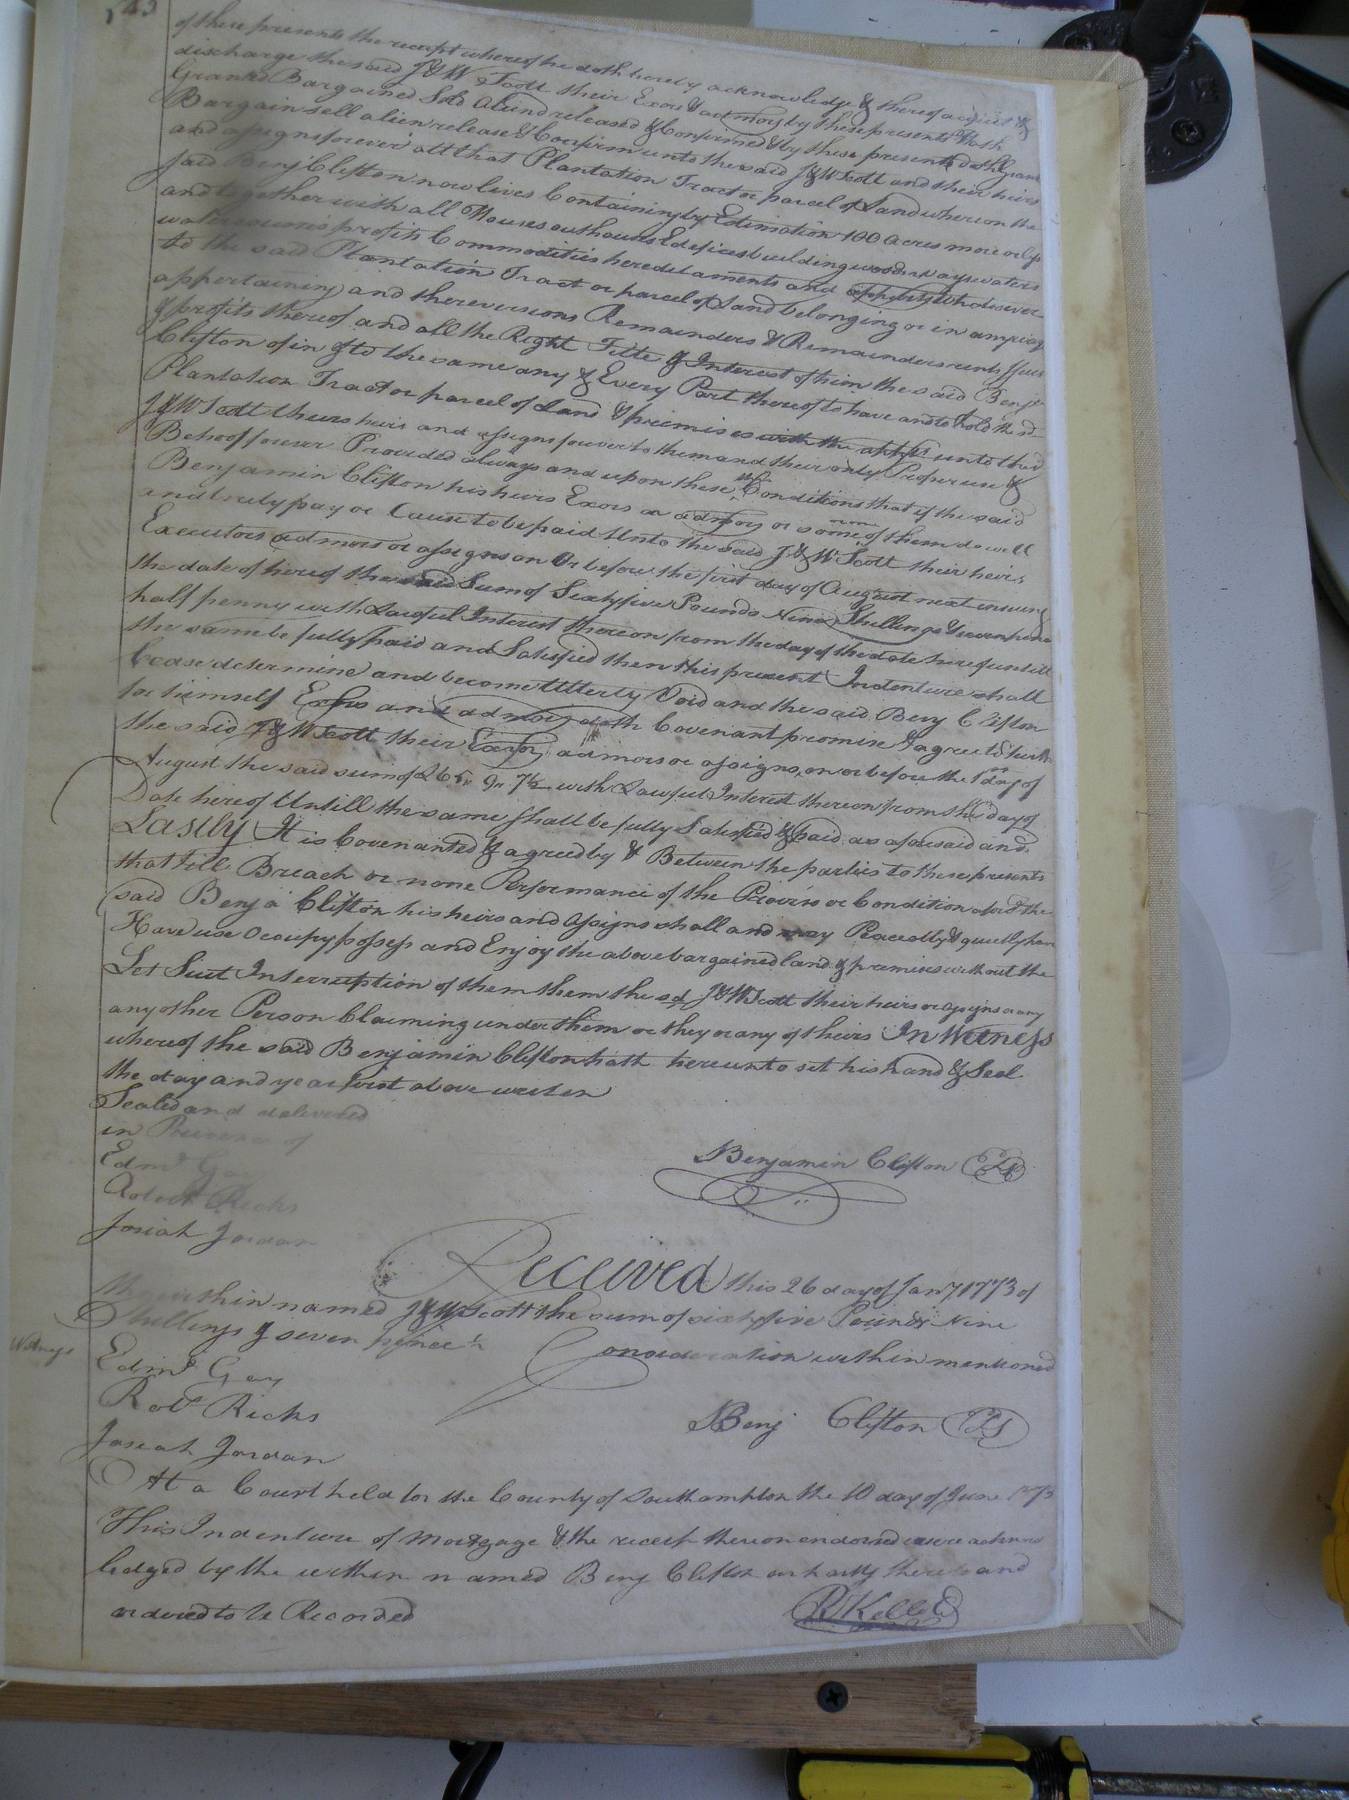 543
of these presents the receipt whereof he doth hereby acknowledge & thereof acquit &
discharge the said J & W Scott their Exors & admors by these presents Hath
Granted Bargained Sold aliend released & Confirmed & by these presents doth grant
Bargain sell alien release & Confirm unto the said J & W Scott and their heirs
and assigns forever all that Plantation Tract or parcel of Land whereon the
said Benj Clifton now lives Containing by Estimation 100 acres more or less
and together with all Houses outhouses Edifices buildings woods ways waters
watercourses profits Commodities heredetaments and appurts whatsoever
to the said Plantation Tract or parcel of Land belonging or in anywise
appertaining and the reversions Remainders & Remainders rents Issues
& profits thereof and all the Right Title & Interest of him the said Benja
Clifton of in & to the same any & Every Part thereof to have and to hold the sd
Plantation Tract or parcel of Land & premises with the appts unto the sd
J & W Scott theirs heirs and assigns forever to them and their only Proper use &
Behoof forever Provided always and upon these Conditions that if the said
Benjamin Clifton his heirs Exors or admors or some of them do well
and truly pay or Cause to be paid Unto the said J & W Scott their heirs
Executors admors or assigns on Or before the first day of August next ensuing
the date of hereof the said Sum of Sixty five Pounds Nine Shillings & seven pence
half penny with Lawful Interest thereon from the day of the date hereof untill
the same be fully paid and Satisfied then this present Indenture shall
Cease determine and become Utterly Void and the said Benj Clifton
for himself Exors and admors doth Covenant promise & agree to & with
the said J & W Scott their Exors admors or assigns, on or before the 1st day of
August the said sum of £65,, 9,, 7½ with Lawful Interest thereon from the day of
Date hereof Untill the same shall be fully Satisfied & paid as aforesaid and
Lastly It is Covenanted & agreed by & Between the parties to these presents
that till Breach or none Performance of the Proviso or Condition aforsd the
said Benja Clifton his heirs and assigns shall and may Peacebly & quietly
Have use Occupy possess and Enjoy the above bargained land & premises without the
Let Suit Interruption of them them the sd J & W Scott their heirs or assigns or any
any other Person Claiming under them or they or any of theirs In Witness
whereof the said Benjamin Clifton hath hereunto set his hand & Seal
the day and year first above writen
Sealed and delivered
in Presence of
Edmd Gay
Benjamin Clifton LS
Robert Ricks
Josiah Jordan
Received this 26 day of Jany 1773 of
the within named J & W Scott the sum of sixty five Pounds Nine
Shillings & seven pence ½ Consideration within mentioned
Witness
Edmd Gay
Robt Ricks
Benj Clifton LS
Josiah Jordan
At a Court held for the County of Southampton the 10 day of June 1773
This Indenture of Mortgage & the receipt thereon endorsed were acknow
ledged by the within named Benj Clifton party thereto and
ordered to be Recorded
R Kello